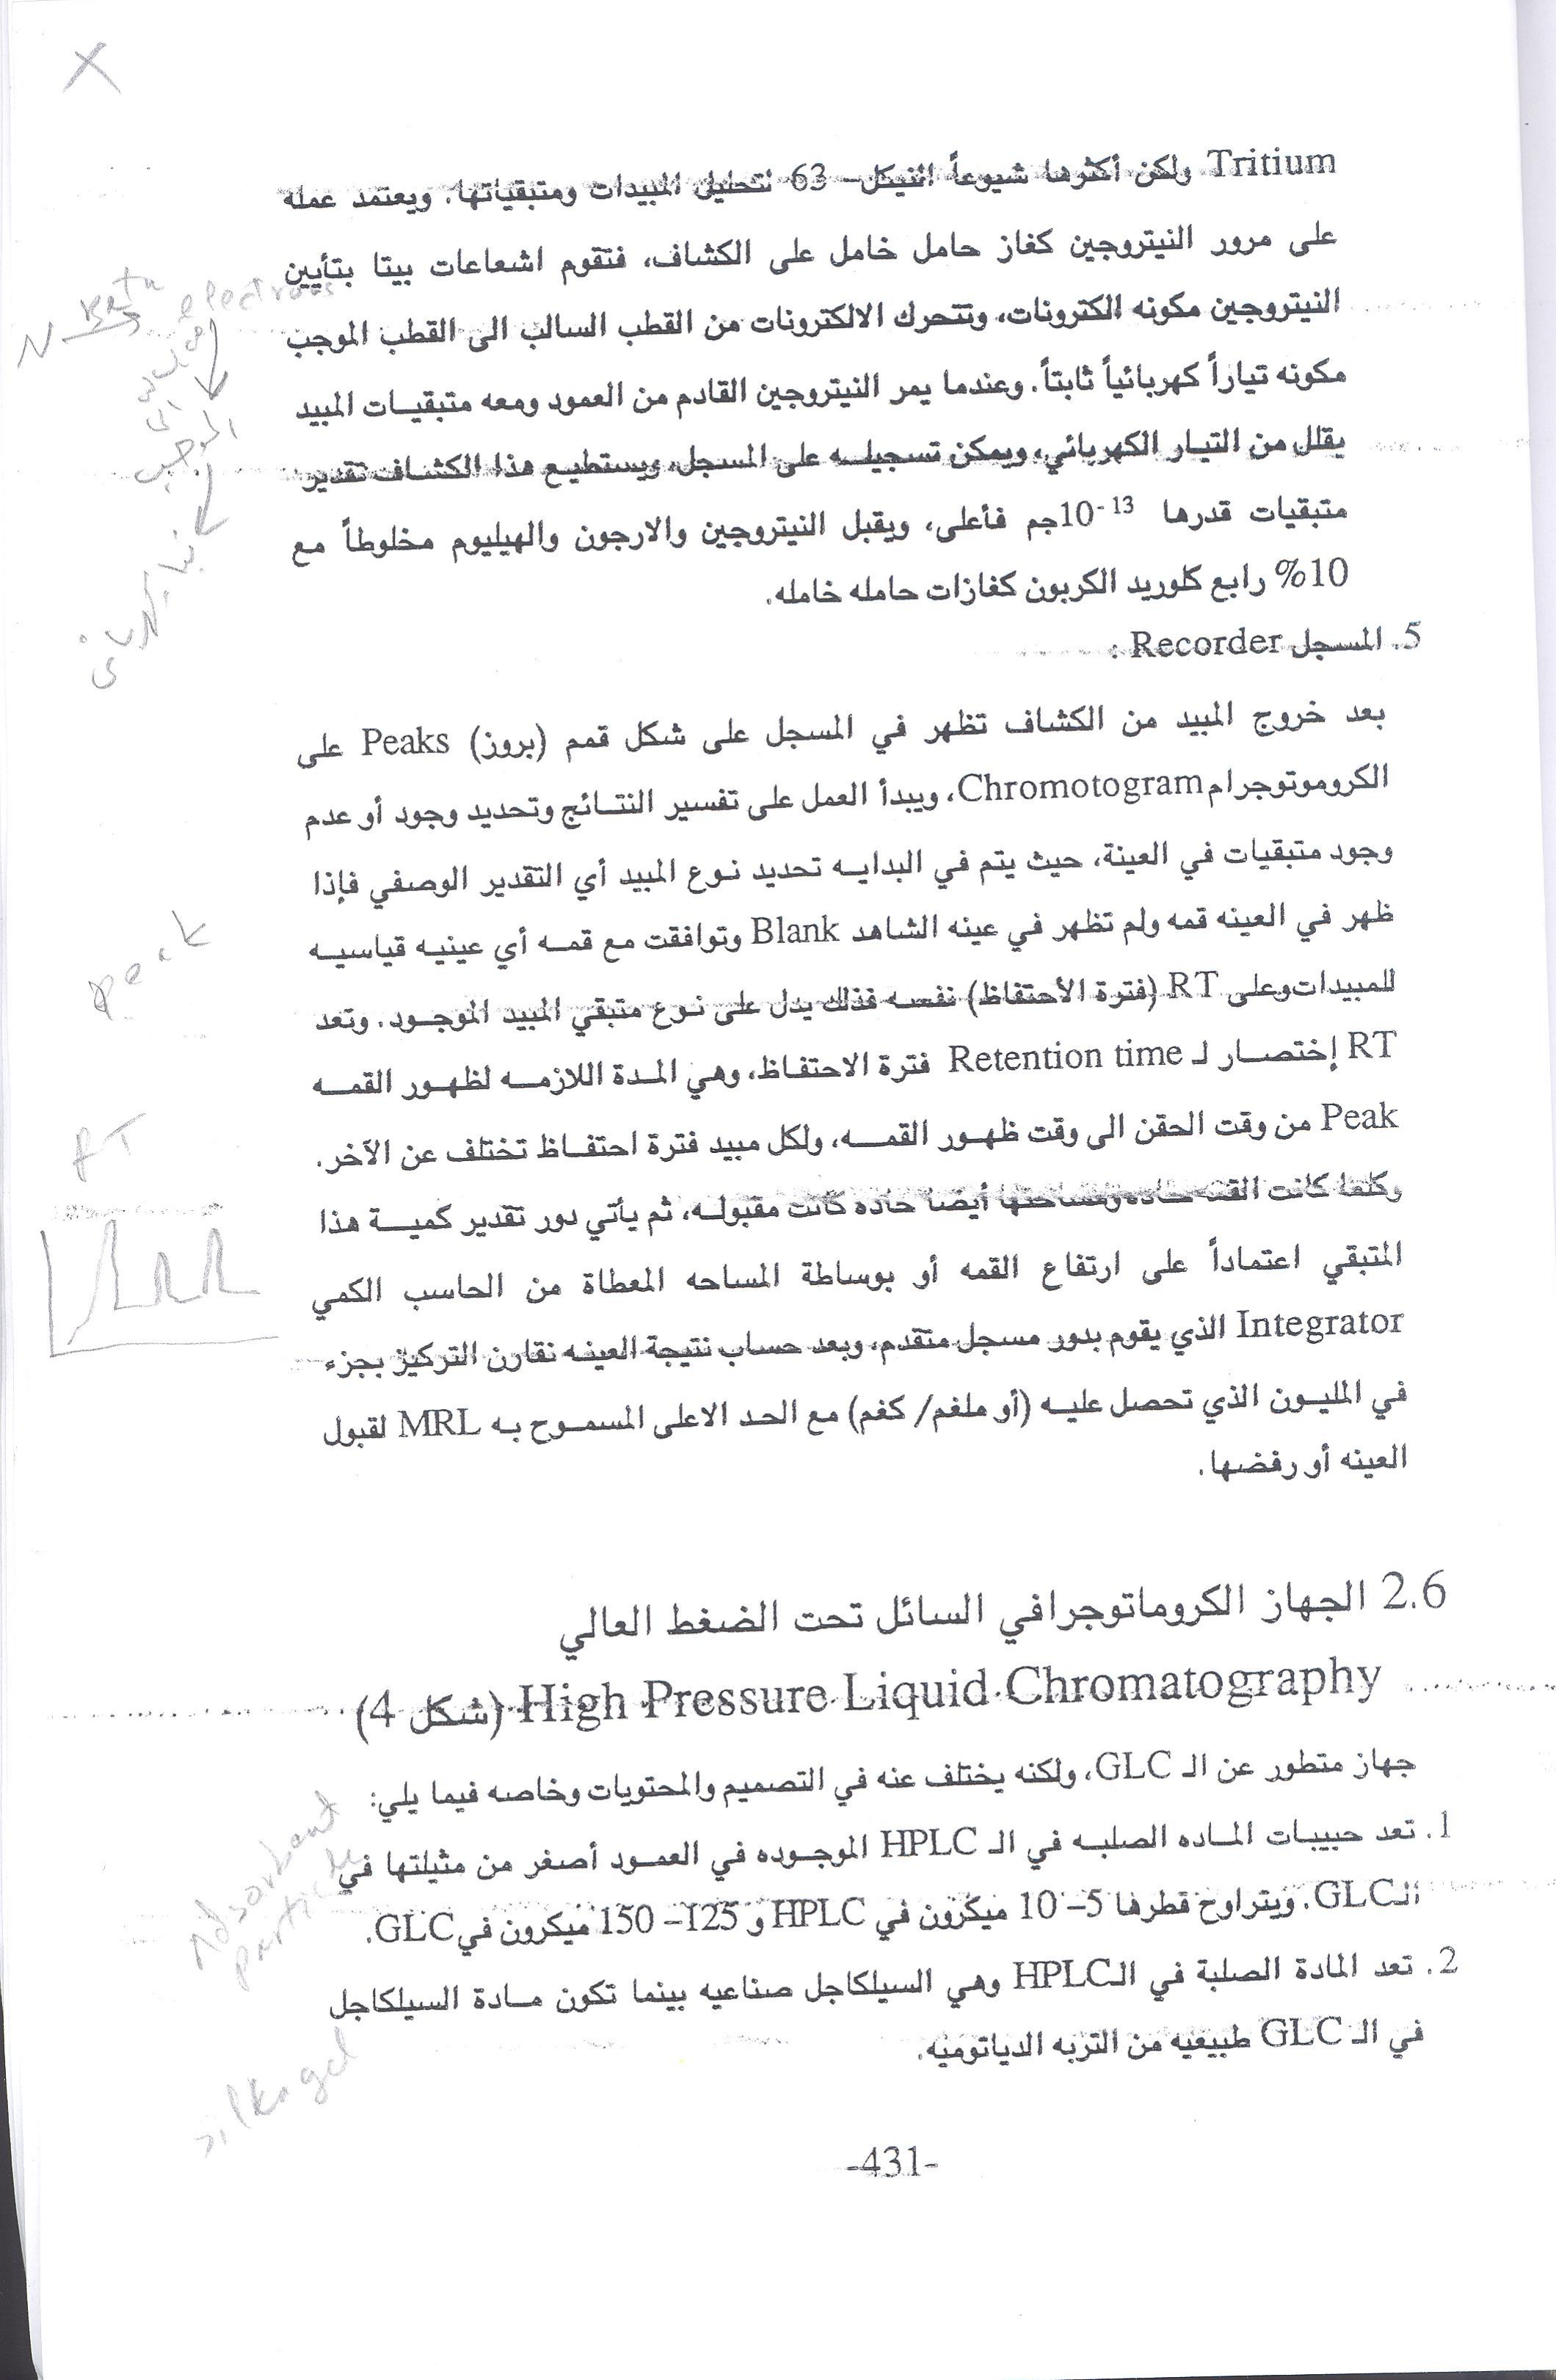 Tritium ولكن أكثرها شيوعاً النيكل– 63 لتحليل المبيدات ومتبقياتها. ويعتمد عمله
على مرور النيتروجين كغاز حامل خامل على الكشاف، فتقوم اشعاعات بيتا بتأيين
النيتروجين مكونه الكترونات، وتتحرك الالكترونات من القطب السالب الى القطب الموجب
مكونه تياراً كهربائياً ثابتاً. وعندما يمر النيتروجين القادم من العمود ومعه متبقيـات المبيد
يقلل من التيـار الكهربائي، ويمكن تسجيلـه على المسجل، ويستطيـع هذا الكشـاف تقدير
متبقيات قدرها 10-13جم فأعلى، ويقبل النيتروجين والارجون والهيليوم مخلوطاً مع
10% رابع كلوريد الكربون كغازات حامله خامله.
5. المسجل Recorder :
بعد خروج المبيد من الكشاف تظهر في المسجل على شكل قمم (بروز) Peaks على
الكروموتوجرام Chromotogram، ويبدأ العمل على تفسير النتـائج وتحديد وجود أو عدم
وجود متبقيات في العينة، حيث يتم في البدايـه تحديد نـوع المبيد أي التقدير الوصفي فإذا
ظهر في العينه قمه ولم تظهر في عينه الشاهد Blank وتوافقت مع قمـه أي عينيـه قياسيـه
للمبيدات وعلى RT (فترة الأحتفاظ) نفسـه فذلك يدل على نـوع متبقي المبيد الموجـود. وتعد
RT إختصـار لـ Retention time فترة الاحتفـاظ، وهي المـدة اللازمـه لظهـور القمـه
Peak من وقت الحقن الى وقت ظهـور القمـه، ولكل مبيد فترة احتفـاظ تختلف عن الآخر.
وكلما كانت القمه حـاده ومساحتها أيضا حاده كانت مقبولـه، ثم يأتي دور تقدير كميـة هذا
المتبقي اعتماداً على ارتفاع القمه أو بوساطة المساحه المعطاة من الحاسب الكمي
Integrator الذي يقوم بدور مسجل متقدم، وبعد حساب نتيجة العينـه نقارن التركيز بجزء
في المليـون الذي تحصل عليـه (أو ملغم/ كغم) مع الحـد الاعلى المسمـوح بـه MRL لقبول
العينه أو رفضها.
2.6 الجهاز الكروماتوجرافي السائل تحت الضغط العالي
High Pressure Liquid Chromatography (شكل 4)
جهاز متطور عن الـ GLC، ولكنه يختلف عنه في التصميم والمحتويات وخاصه فيما يلي:
1. تعد حبيبات المـاده الصلبـه في الـ HPLC الموجـوده في العمـود أصغر من مثيلتها في
الـGLC. ويتراوح قطرها 5– 10 ميكرون في HPLC و 125– 150 ميكرون في GLC.
2. تعد المادة الصلبة في الـHPLC وهي السيلكاجل صناعيه بينما تكون مـادة السيلكاجل
في الـ GLC طبيعيه من التربه الدياتوميه.
-431-
X
N Beta electrons
السالب
الى
الموجب
تيار كهربائي
peak
RT
Adsorbant
particle
silkagel